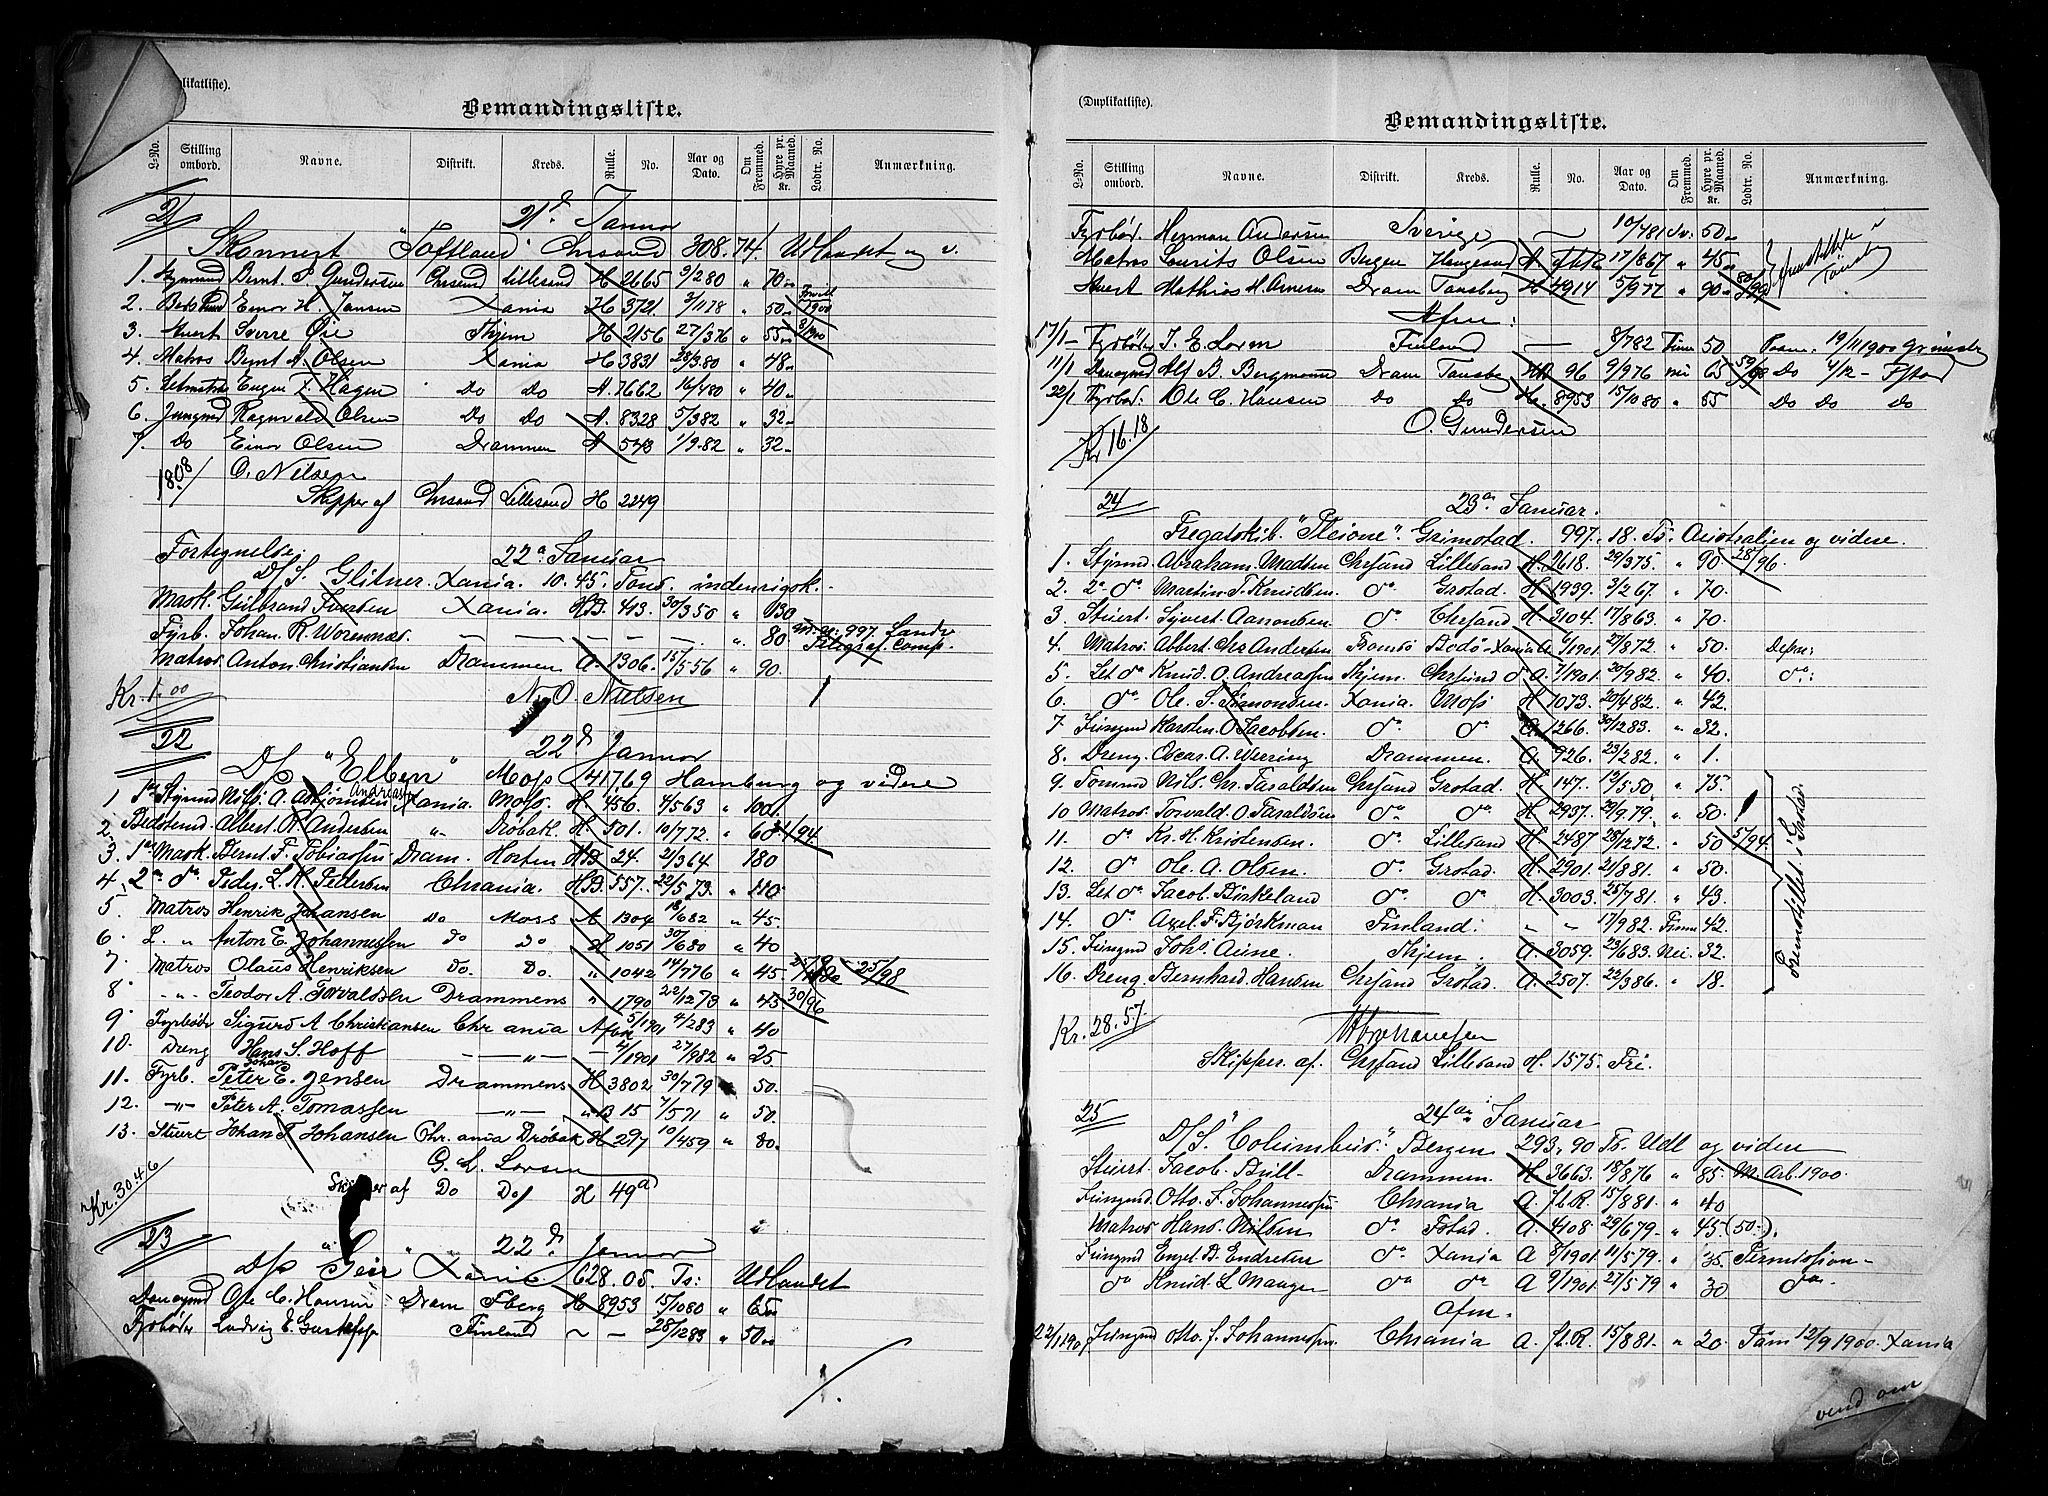 (Duplikatliste).
Bemandingsliste.
L-No. Stilling ombord. Navne. Distrikt. Kreds. Rulle. No. Aar og Dato. Om Fremmed. Hyre pr. Maaned. Kr. Lodtr. No. Anmærkning.
21 21d Januar
Skonnert "Toftland" Chrsand 308.74. Udlandet og v.
1. Styrmand Bernt P. Gundersen Chrsand Lillesand H 2665 9/2 80 " 70
2. Einar H. Jansen Xania H 3721 3/11 78 " 50
3. Stuert Sverre Øie Thjem H 2156 27/3 76 " 55
4. Matros Bernt A. Olsen Xania H 3831 28/3 80 " 48
5. Letmatros Eugen Z. Hagen Do Do A 7662 16/4 80 " 40
6. Jungmd Ragnvald Olsen Do Do A. 8328 5/3 82 " 32
7. Do Einar Olsen Drammen A 573 1/9 82 " 32
18.08/ O. Nilsen
Skipper af Chrsand Lillesand H 2249
Fortegnelse. 22a Januar
D/S. Glitner. Xania. 10.45. Tons. indenrigsk.
Mask. Gulbrand Iversen Xania. HB. 413. 30/3 50 " 130
Fyrb. Johan. R. Worennæs — — — — " 80 997. Landv
Matros Anton Christiansen Drammen A. 1306. 15/5 56 " 90. Comp.
Kr. 1.00 N. O. Nielsen
22 22d Januar
D/S "Elben" Moss 417,69 Hamburg og videre
1 1ste Styrmd Nils. A. Asbjørnsen Andreasen Xania. Moss. H. 456. 4/5 63 " 100
2. Bedstemd Albert R. Andersen " Drøbak. H. 501. 10/7 72 " 60 21/94.
3. 1ste Mask. Bernt. F. Tobiassen Dram. Horten HB 24. 21/3 64 180
4. 2en do Peder. L. H. Pettersen Chrania. HB. 557. 22/5 73 " 110
5. Matros Henrik Johansen Do Moss A 1304 18/6 82 " 45.
6. L. " Anton E. Johannessen Do Do H 1051 30/6 80 " 40
7. Matros Olaus Henriksen Do. Do. " 1042 14/7 76 " 45 25/98
8. -"- Teodor A. Torvaldsen Drammens " 1790 22/12 78 " 45 30/96
9. Fyrbøder Sigurd A Christiansen Chr ania A 5/1901 4/2 83 " 40
10. Dreng Hans S. Hoff — " — — 6/1901 27/9 82 " 25
11. Fyrb. Peter Johan E. Jensen Drammens H 3802 30/7 79 " 50.
12. -"- Peter A. Tomassen — " — " B 15 7/5 71 " 50.
13. Stuert Johan T Johansen Chr. ania Drøbak H 297 10/4 59 " 80
G. L. Larsen
Kr. 30.46 Skipper af Do Do/ H 49a)
23 22d Januar
D/S "Geir" Xania 628.05. Ts: Udlandet
Donkymd Ole C. Hansen Dram Tberg H 8953 15/10 80 " 65
Fyrbøder Ludvig E. Gustafsson Finland ~ — 28/12 83 " 50

(Duplikatliste).
Bemandingsliste.
L-No. Stilling ombord. Navne. Distrikt. Kreds. Rulle. No. Aar og Dato. Om Fremmed. Hyre pr. Maaned. Kr. Lodtr. No. Anmærkning.
Fyrbød. Herman Andersen Sverige ~ 10/4 81 Sv: 50
Matros Lourits Olsen Bergen Haugesund A 17/8 67 " 45
Stuert Mathias H. Arnesen Dram Tønsberg H 4914 5/9 77 " 90 Tønsberg
Afm:
17/1 - Fyrbøder J. E. Loren Finland — 8/7 82 50 Paam. 19/11 1900 Grimsby
11/1 Donkymd Alf B. Bergmann Dram Tønsberg HB 96 9/9 76 nei 65 59/98 Do 4/12 - Fstad
22/1 Fyrbød: Ole C. Hansen Do Do H. 8953 15/10 80 " 65 Do Do Do
Kr 16.18 O. Gundersen
24 23de Januar.
Fregatskib. "Pleione". Grimstad. 997.18 Ts. Australien og videre.
1. Styrmd Abraham. Madsen Chrsand Lillesand H. 2618. 29/3 75. " 90 28/96.
2. 2en do Martin. T. Knudsen. do Grstad. H. 1939. 3/2 67 " 70.
3. Stuert. Syvert. Aanonsen. do Chrsand H. 3104. 17/8 63. " 70.
4. Matros. Albert. Chr Andersen Tromsø Bodø-Xania A 6/1901. 27/8 72. " 50 Depm:
5. Let do Knud. O. Andreassen Thjem. Chrsund do A. 7/1901. 20/9 82. " 40. do:
6. do Ole. S. Simonsen. Xania. Moss H 1073. 20/4 82. " 42.
7. Jungmd Karsten. O. Jacobsen. do do A. 1266. 30/12 83. " 32.
8. Dreng. Oscar. A. Weering Drammen. A. 926. 23/2 82. " 1.
9. Tømmd Nils. Chr. Taraldsen Chrsand Grstad. H. 147. 12/5 50. " 75.
10 Matros Torvald O. Taraldsen do do H. 2937. 29/9 79. " 50.
11. do Kr. H. Kristensen. do Lillesand H. 2487 28/12 72. " 50 5/94.
12. do Ole. A. Olsen. do Grstad H. 2901 21/8 81. " 50.
13. Let do Jacob. Birkeland do do H. 3003. 25/7 81. " 43.
14. do Axel. F. Bjørkman Finland: " " 17/9 82. Finn 42.
15. Jungmd Johs Aune. Thjem. A. 3059. 23/6 83. Nei 32.
16. Dreng. Bernhard. Hansen Chrsand Grstad. A. 2507. 22/3 86. " 18.
Fremstillet i Grstad.
Kr. 28.57.
Skipper. af. Chrsand Lillesand H. 1575. Fri.
25 24de Januar
D/S. "Columbus". Bergen 293,90 Ts. Udl og videre
Stuert. Jacob. Bull- Drammen. H. 3663. 18/8 76 " 85. M. Arb. 1900.
Jungmd Otto. J. Johannessen Chrania A. fl.R. 15/8 81. " 40
Matros Hans. Nilsen do Fstad. A. 4108. 29/6 79. " 45 (50.).
Jungmd Engel. B. Endresen do Xania A 8/1901. 11/5 79. " 35. Permission-
do Knud L Manger do do A 9/1901. 27/5 79 " 30 do
Afm -
22/1 1901 Jungmd Otto. J. Johannessen. Chrania A. fl.R. 15/8 81. " 20. Paam 12/9 1900. Xania
vend om